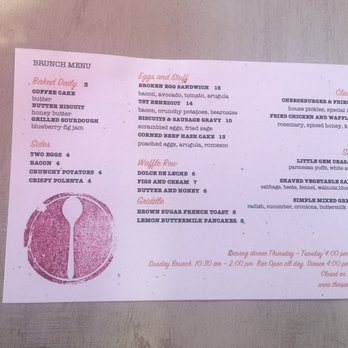 BRUNCH MENU
Baked Daily 3
COFFEE CAKE
butter
BUTTER BISCUIT
honey butter
GRILLED SOURDOUGH
blueberry-fig jam
Sides
TWO EGGS 4
BACON 4
CRUNCHY POTATOES 4
CRISPY POLENTA 4
Eggs and Stuff
BROKEN EGG SANDWICH 13
bacon, avocado, tomato, arugula
TSY BENEDICT 14
bacon, crunchy potatoes, bearnaise
BISCUITS & SAUSAGE GRAVY 10
scrambled eggs, fried sage
CORNED BEEF HASH CAKE 15
poached eggs, arugula, romesco
Waffle Row
DOLCE DE LECHE 6
FIGS AND CREAM 7
BUTTER AND HONEY 6
Griddle
BROWN SUGAR FRENCH TOAST 8
LEMON BUTTERMILK PANCAKES 8
Cla
CHEESEBURGER & FRIE
house pickles, special s
FRIED CHICKEN AND WAFFL
rosemary, spiced honey, k
S
LITTLE GEM CESA
parmesan puffs, white a
SHAVED VEGETABLE SA
cabbage, beets, fennel, walnuts, blue
SIMPLE MIXED GRE
radish, cucumber, croutons, buttermilk
Serving dinner Thursday - Tuesday 4:00 pm
Sunday Brunch 10:30 am - 2:00 pm Bar Open all day Dinner 4:00 p
Closed on
www.thespo